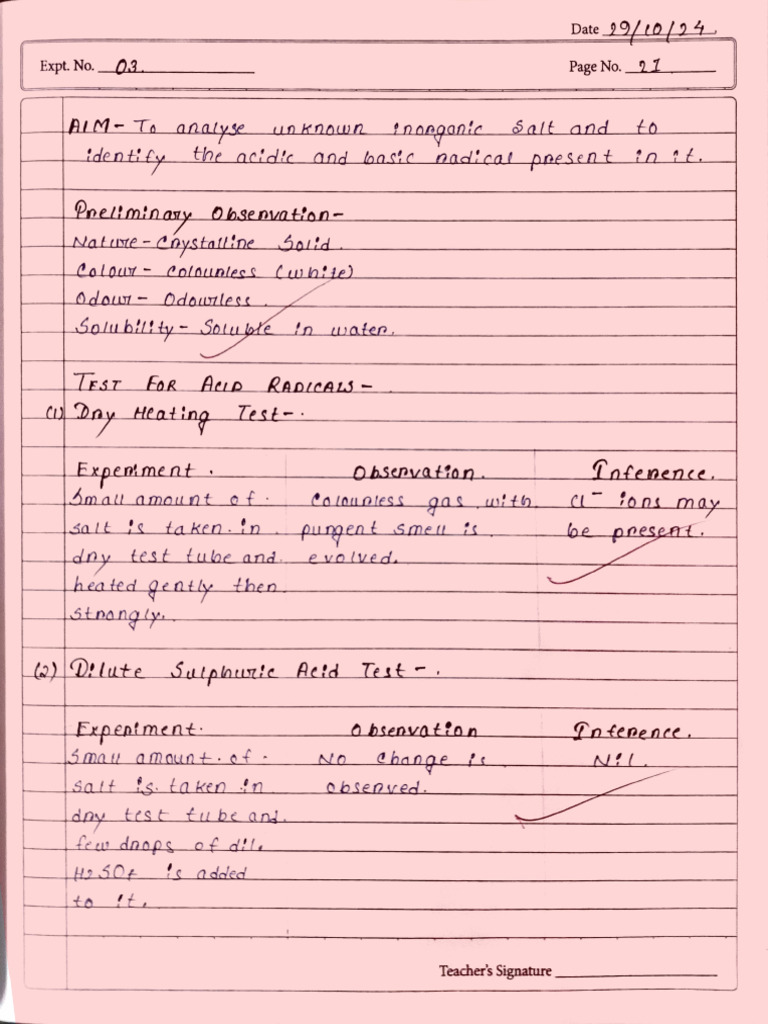 Date 29/10/24
Expt. No. 03.
Page No. 21
AIM- To analyse unknown inorganic salt and to
identify the acidic and basic radical present in it.
Preliminary Observation-
Nature- Crystalline Solid.
Colour- Colourless (white)
Odour- Odourless.
Solubility- Soluble in water.
TEST FOR ACID RADICALS-
(1) Dry Heating Test-.
Experiment. Observation. Inference.
Small amount of. Colourless gas with Cl⁻ ions may
salt is taken in pungent smell is be present.
dry test tube and evolved.
heated gently then
strongly.
(2) Dilute Sulphuric Acid Test-.
Experiment. Observation Inference.
Small amount of. No change is Nil.
salt is taken in observed.
dry test tube and
few drops of dil.
H2SO4 is added
to it.
Teacher's Signature